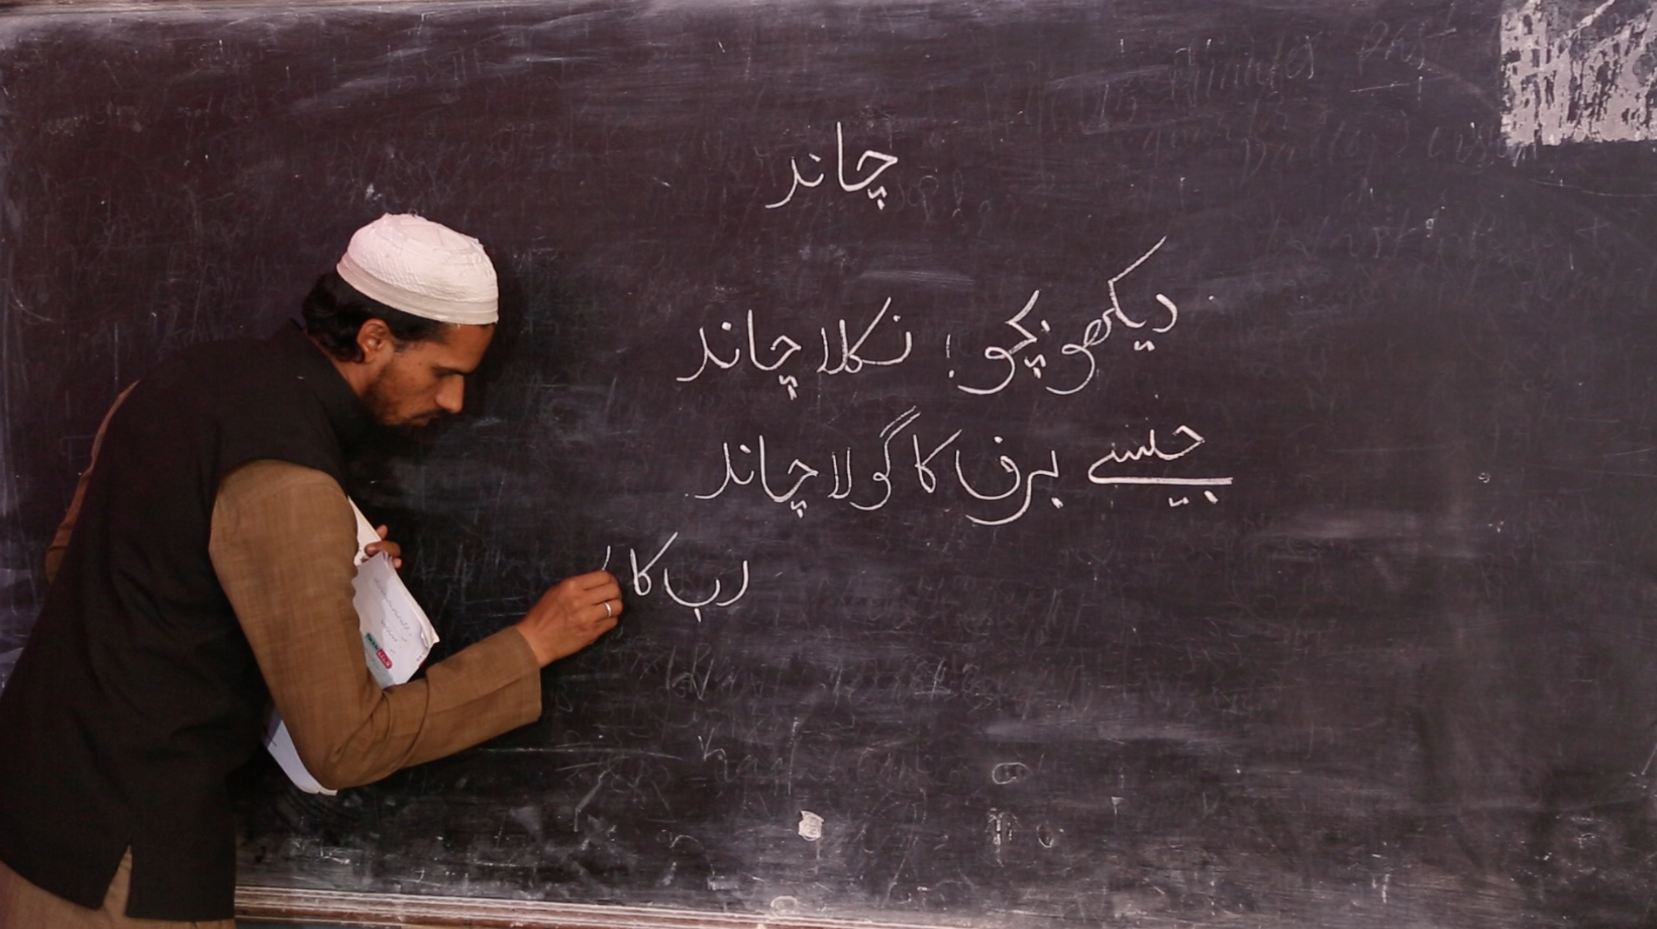 چاند
دیکھو بچو! نکلا چاند
جیسے برف کا گولا چاند
رب کا ا